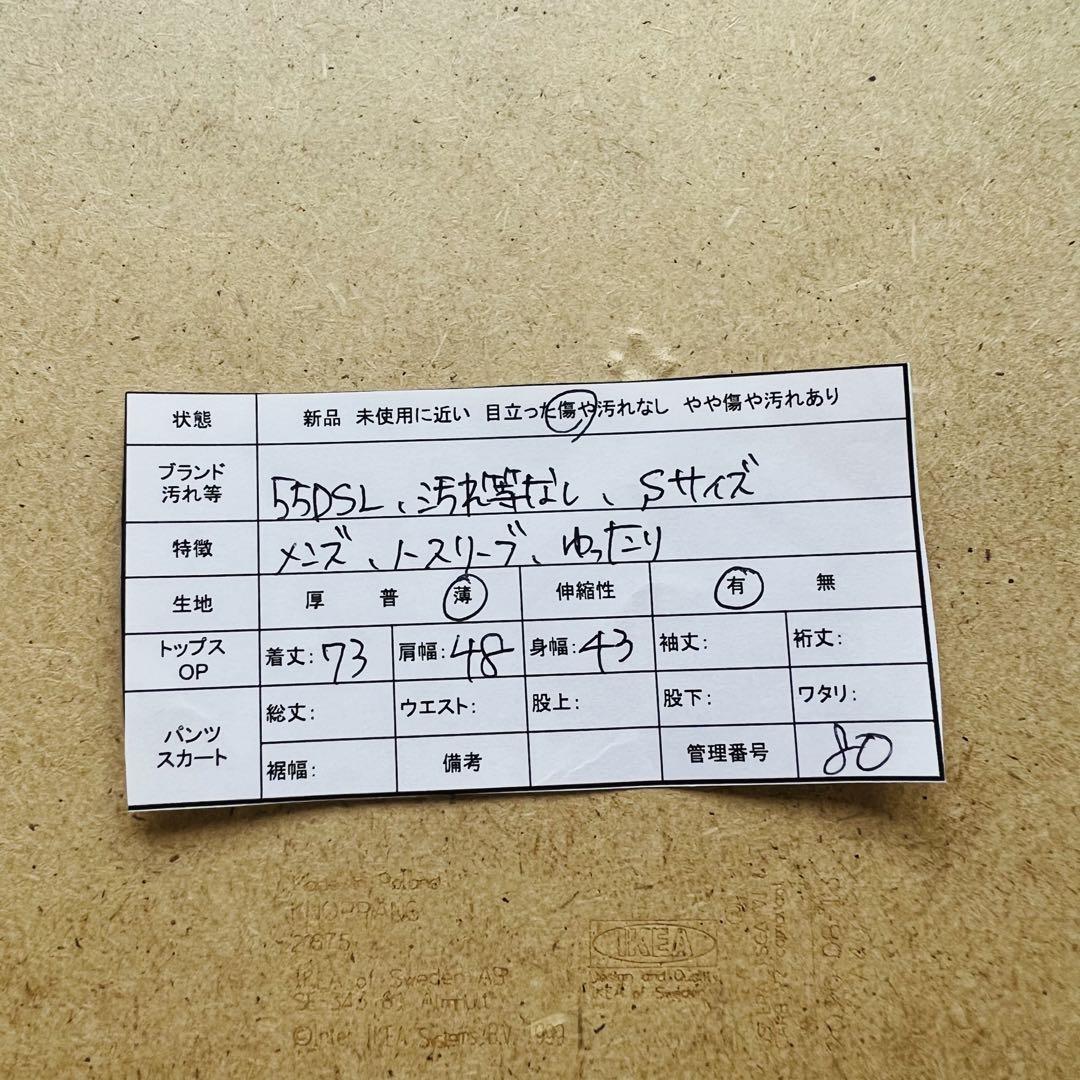 状態 新品 未使用に近い 目立った傷や汚れなし やや傷や汚れあり
ブランド
汚れ等
55DSL、汚れ等なし、Sサイズ
特徴 メンズ、ノースリーブ、ゆったり
生地 厚 普 薄 伸縮性 有 無
トップス
OP
着丈:73 肩幅:48 身幅:43 袖丈: 裄丈:
パンツ
スカート
総丈: ウエスト: 股上: 股下: ワタリ:
裾幅: 備考 管理番号 80
Made in Poland
IKEA of Sweden AB
© Inter IKEA Systems B.V. 1999
IKEA
Design and Quality
IKEA of Sweden